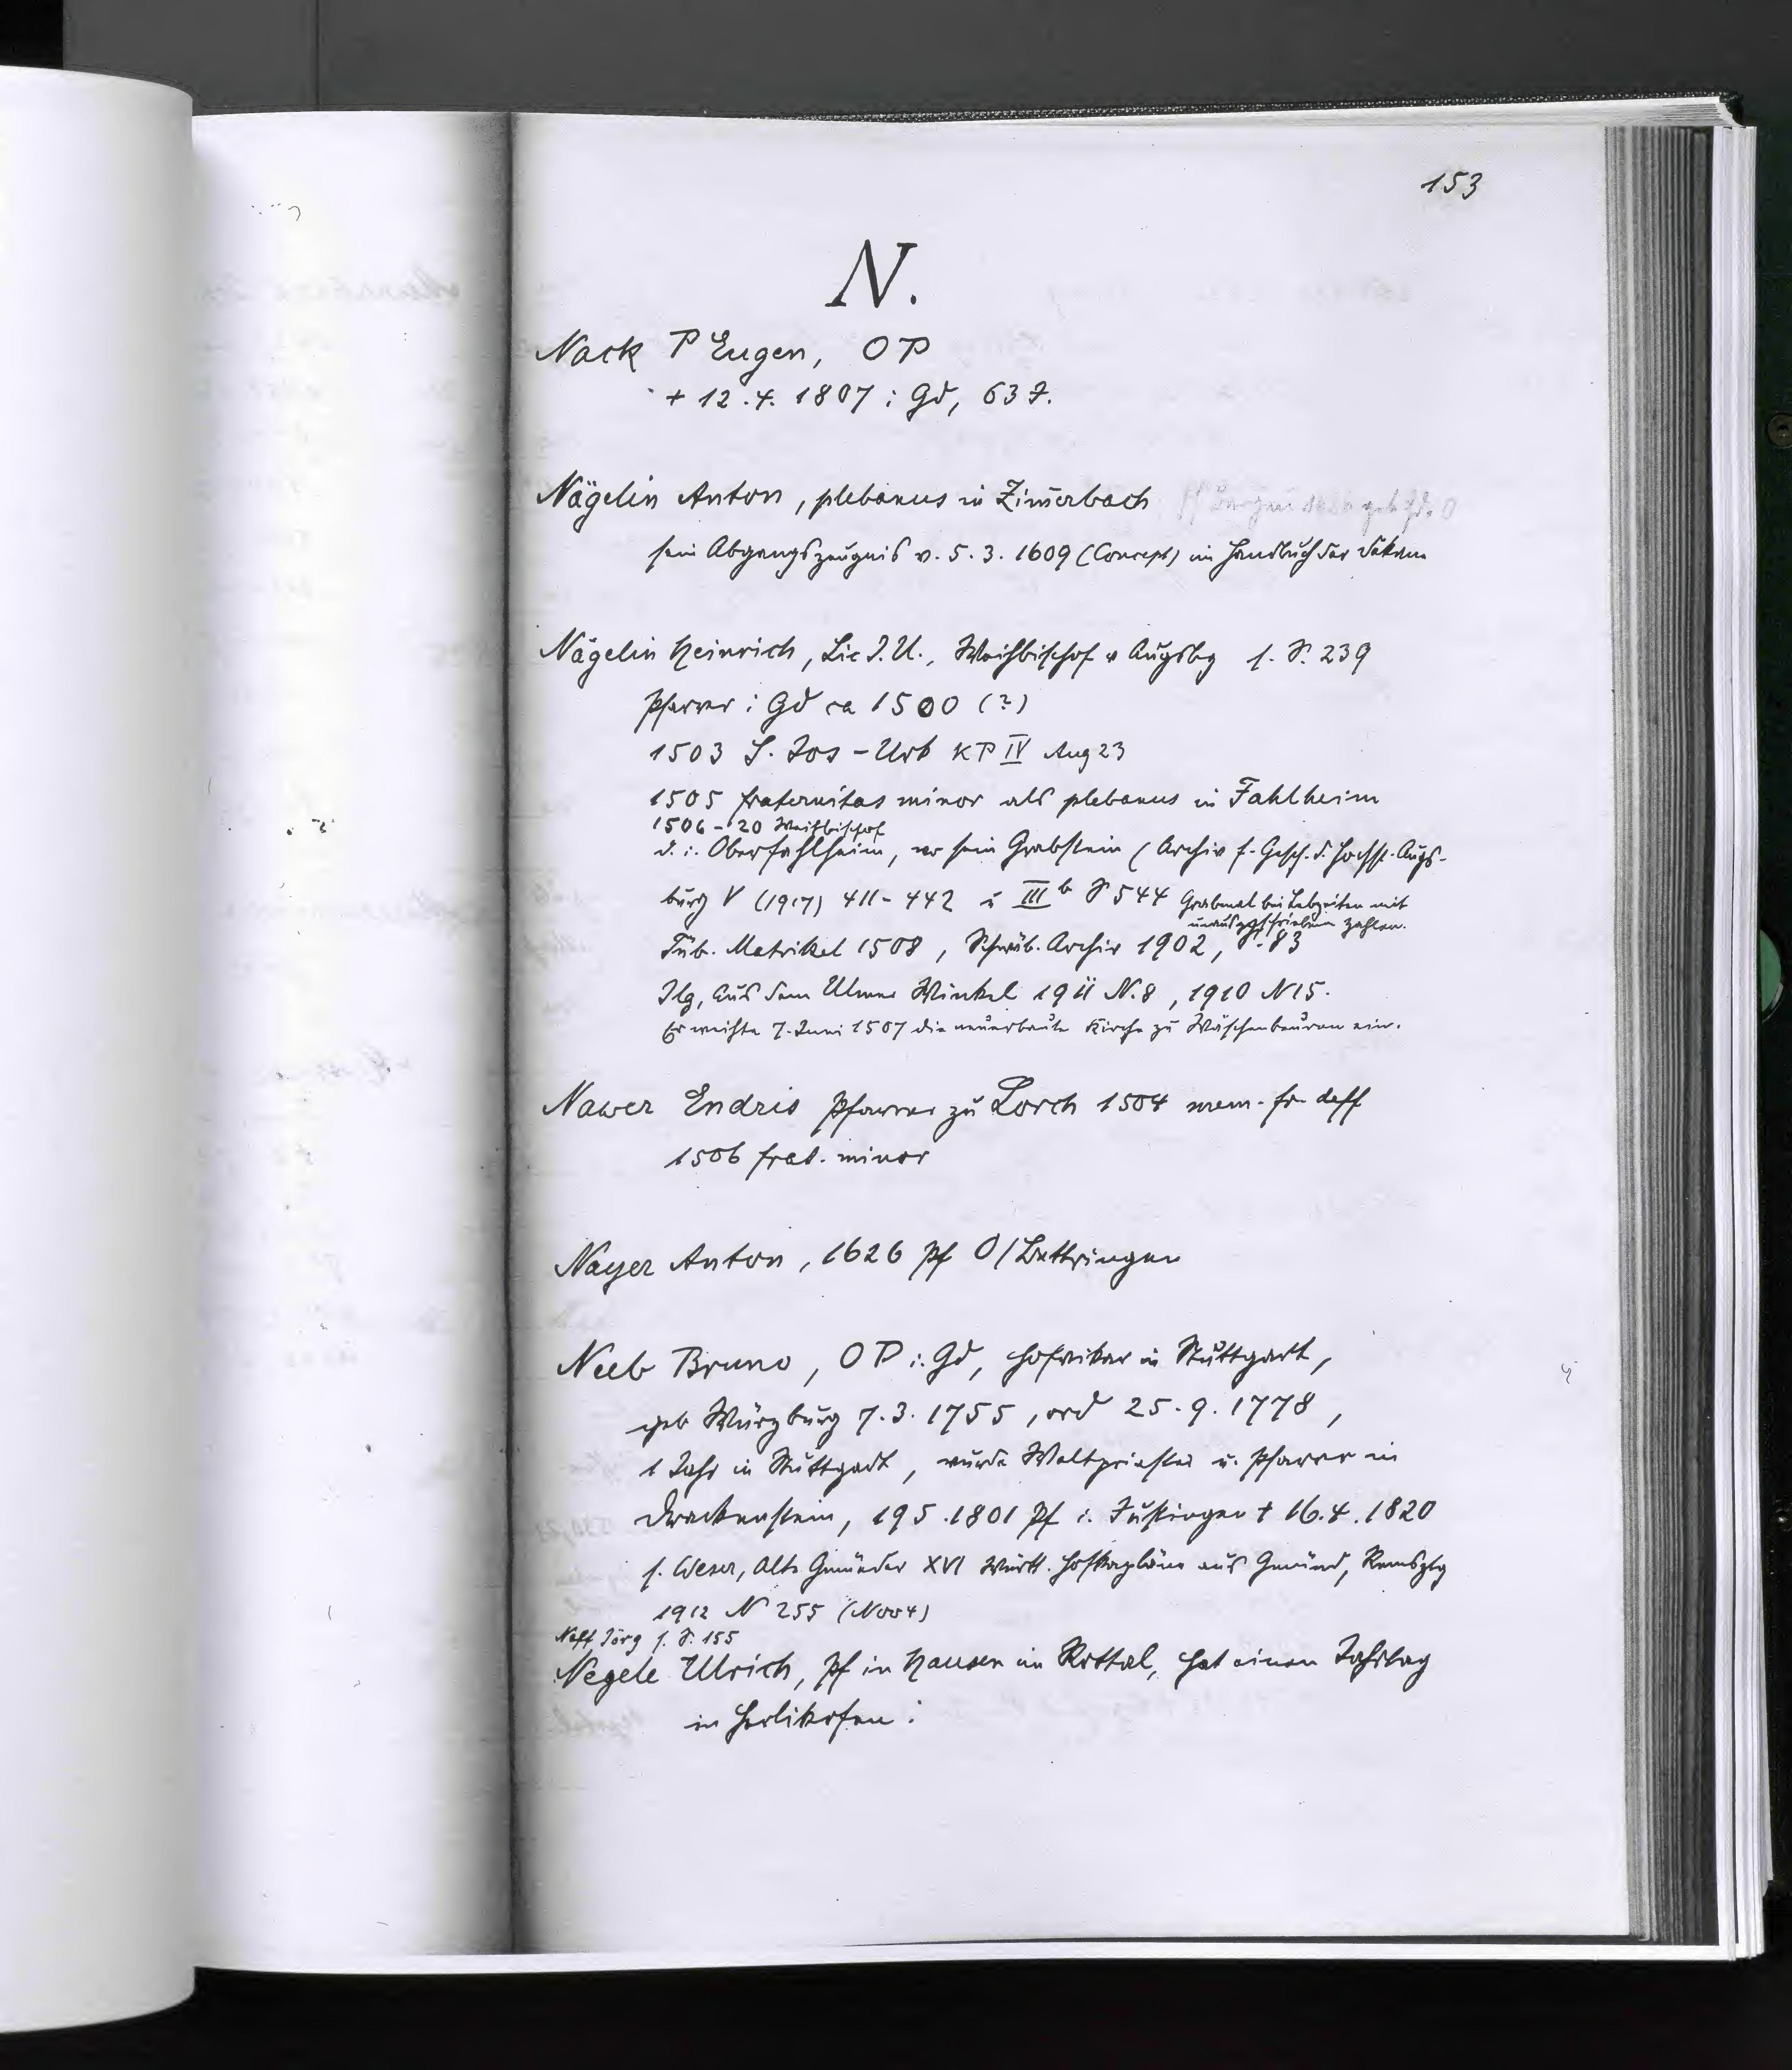 153
N.
Nack P Eugen, OP
+ 12.4. 1807 i Gd, 63 J.
Nägelin Anton, plebanus in Zim̄erbach
sein Abgangszeugnis v. 5.3. 1609 (Concept) im Handbuch der Dekane
Nägelin Heinrich, Lic J.U., Weihbischof v Augsbg s. S. 239
Pfarrer i Gd ca 1500 (?)
1503 S. Jos-Urb KP IV Aug 23
1505 fraternitas minor als plebanus in Fahlheim
1506-20 Weihbischof
d. i. Oberfahlheim, wo sein Grabstein (Archiv f. Gesch. d. Hochst. Augs-
burg V (1917) 411-442 u III b S 544 Grabmal bei Lebzeiten mit
unausgeschriebenen Zahlen.
Tüb. Matrikel 1508, Schwäb. Archiv 1902, S. 83
Ilg, Aus dem Ulmer Winkel 1911 N. 8, 1910 N 15.
Er weihte 7. Juni 1507 die neuerbaute Kirche zu Wäschenbeuren ein.
Nawer Endris Pfarrer zu Lorch 1504 mem. fr deff
1506 frat. minor
Nayer Anton, 1626 Pf O/Bettringen
Neeb Bruno, OP i. Gd, Hofvikar in Stuttgart,
geb Würzburg 7.3. 1755, ord 25.9. 1778,
1 Jahr in Stuttgart, wurde Weltpriester u. Pfarrer in
Drackenstein, 19 5. 1801 Pf i. Justingen † 16.4. 1820
s. Weser, Alte Gmünder XVI Württ. Hofkapläne aus Gmünd, Remsztg
1912 N 255 (Nov 4)
Neff Jörg s. S. 155
Negele Ulrich, Pf in Hausen im Rottal, hat einen Jahrtag
in Herlikofen.